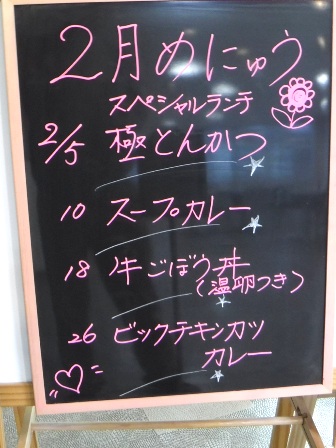 2月めにゅう
スペシャルランチ
2/5 極とんかつ
10 スープカレー
18 牛ごぼう丼
(温卵つき)
26 ビックチキンカツ
カレー